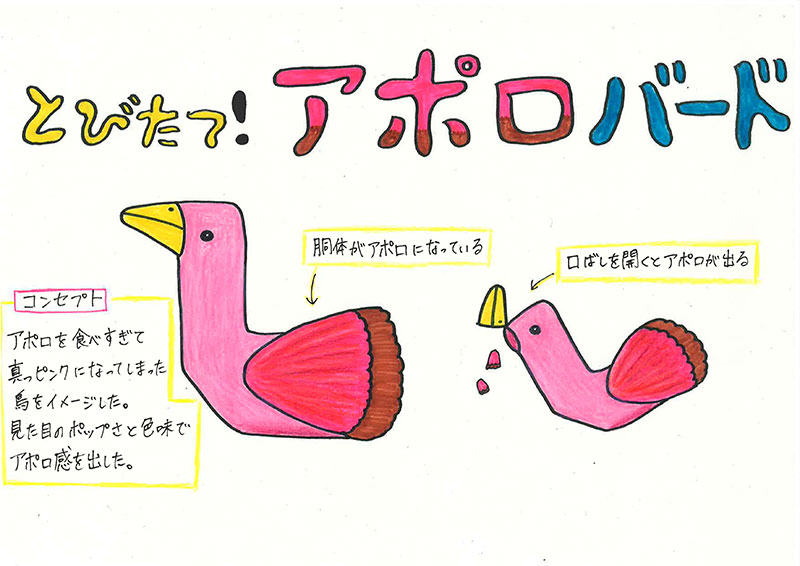 とびたつ!アポロバード
胴体がアポロになっている
口ばしを開くとアポロが出る
コンセプト
アポロを食べすぎて
真っピンクになってしまった
鳥をイメージした。
見た目のポップさと色味で
アポロ感を出した。